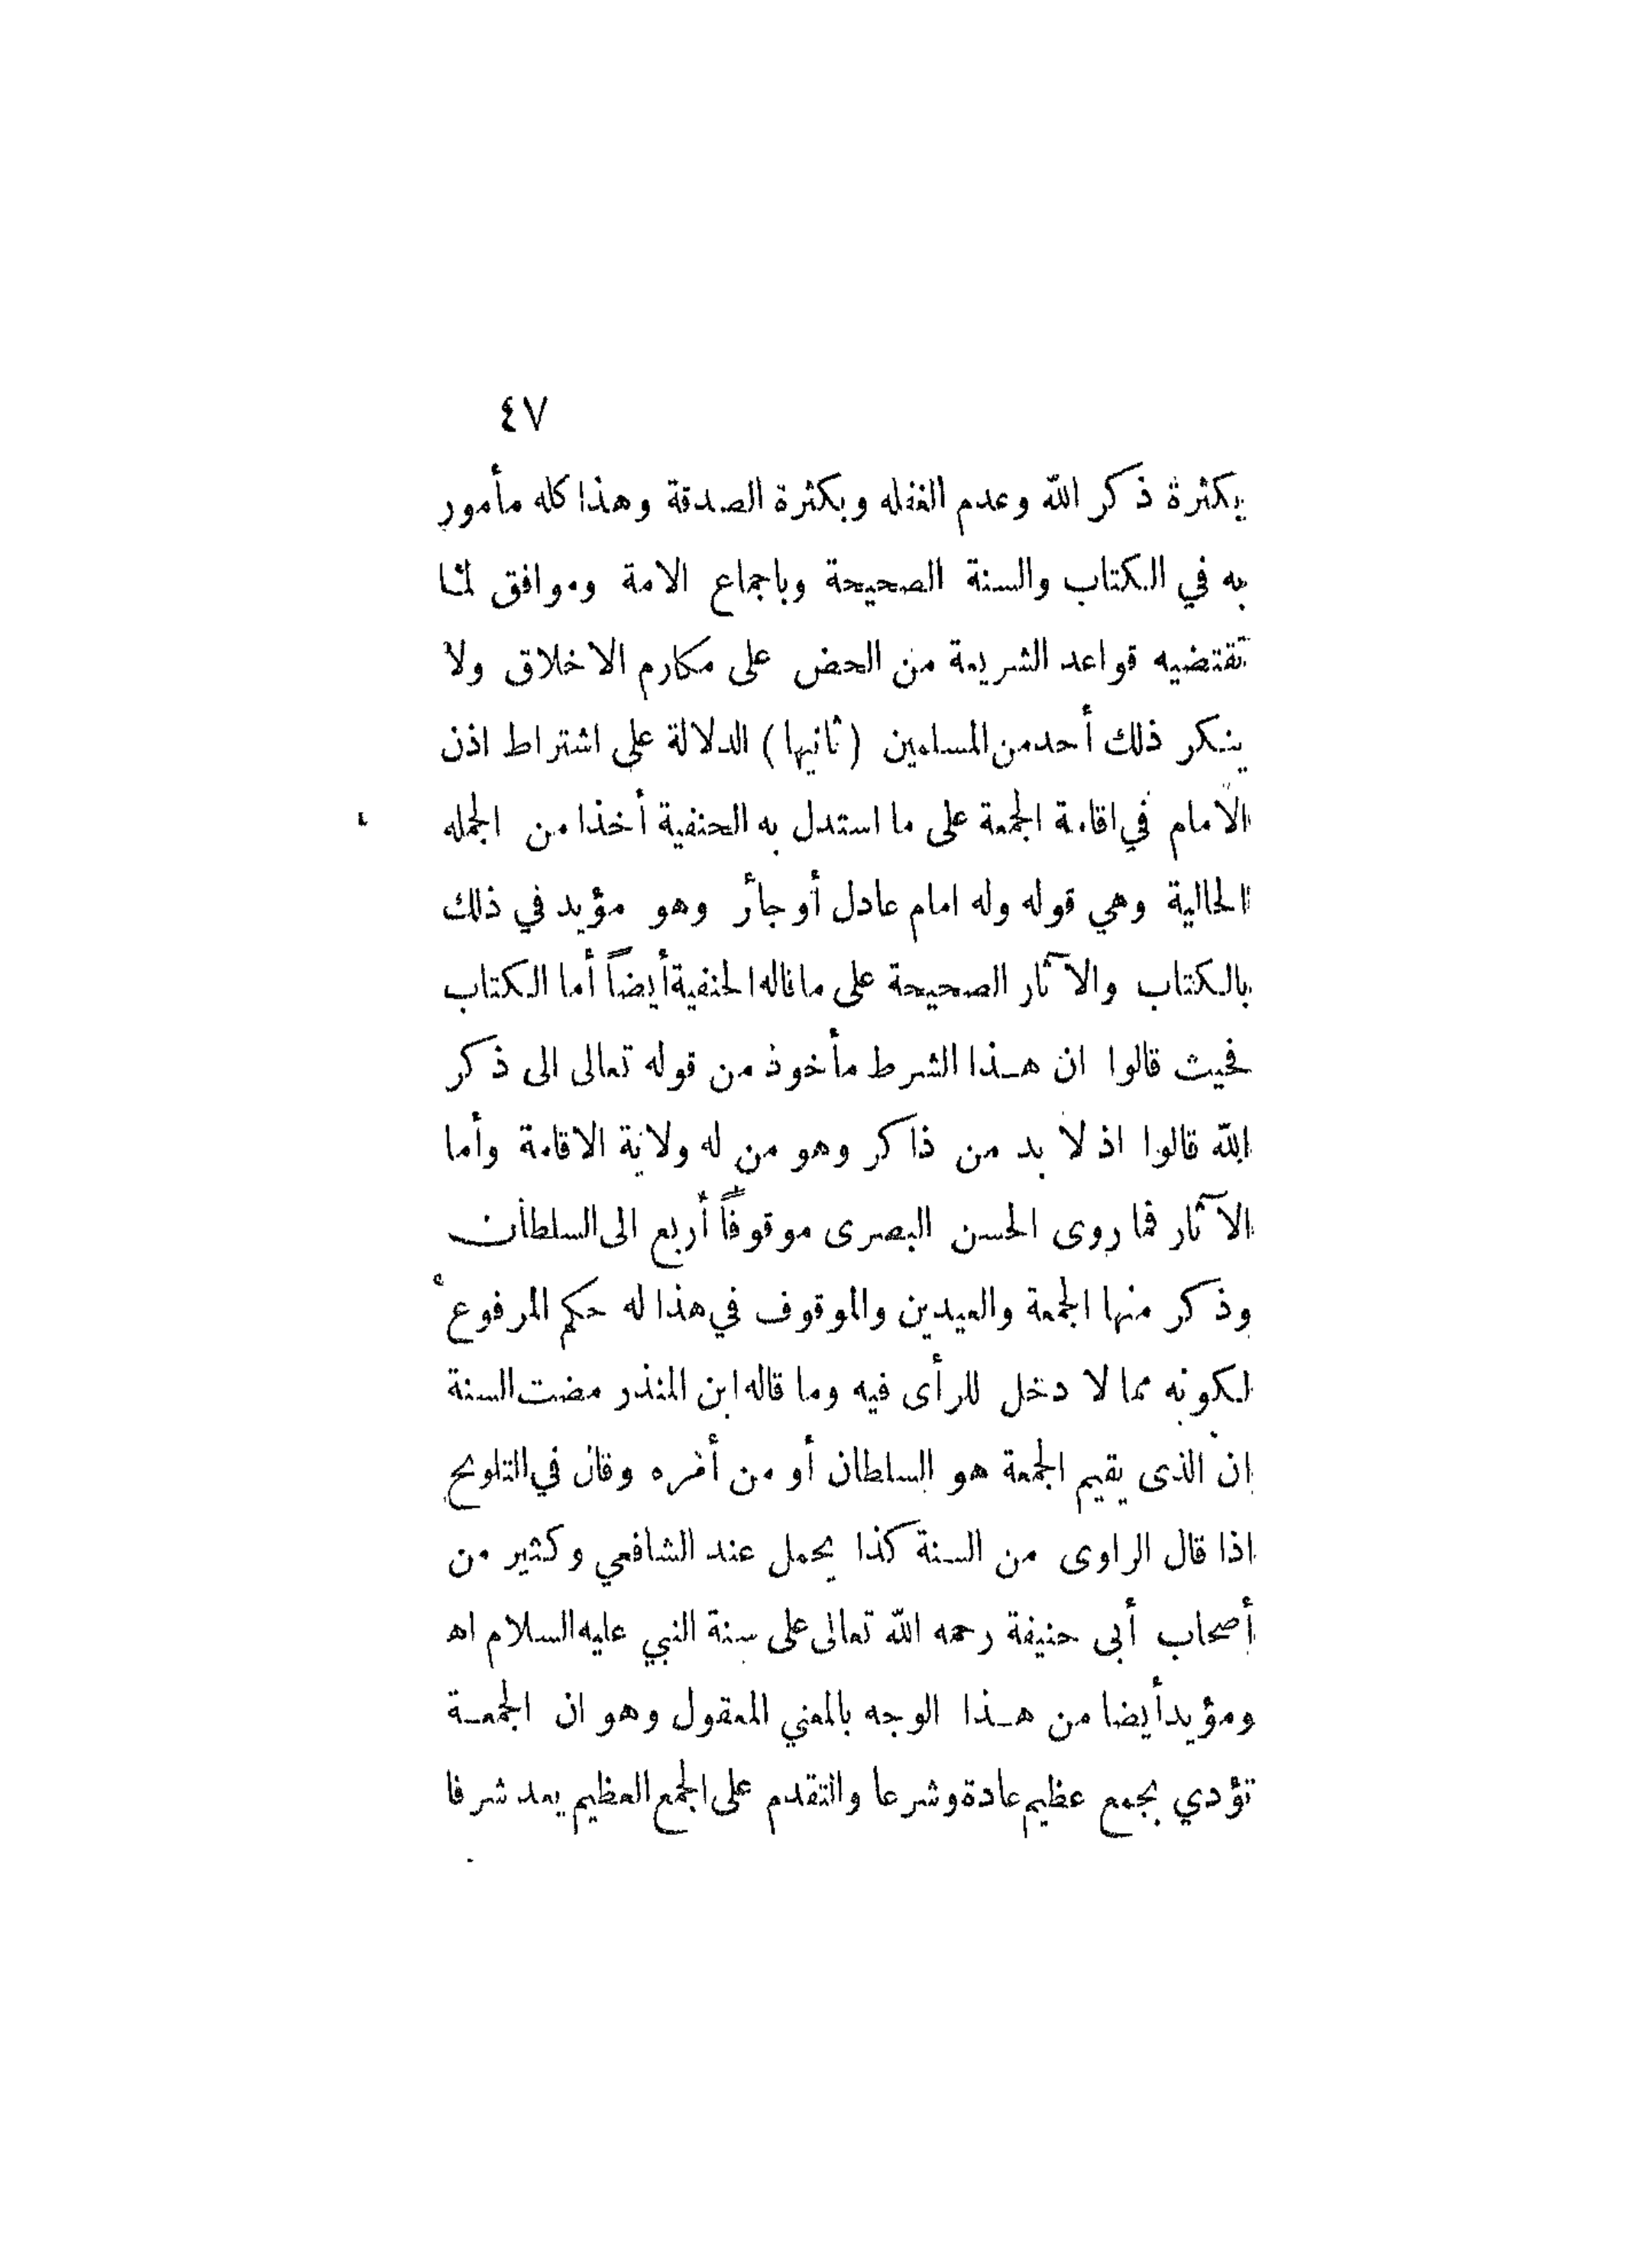 ٤٧
بكثرة ذكر الله وعدم الغفله وبكثرة الصدقة وهذا كله مأمور
به في الكتاب والسنة الصحيحة وباجماع الامة وموافق لما
تقتضيه قواعد الشريعة من الحض على مكارم الاخلاق ولا
ينكر ذلك أحد من المسلمين (ثانيها) الدلالة على اشتراط اذن
الامام في اقامة الجمعة على ما استدل به الحنفية أخذا من الجمله
الحالية وهي قوله وله امام عادل أو جائر وهو مؤيد في ذلك
بالكتاب والآثار الصحيحة على ماقاله الحنفية أيضاً أما الكتاب
فحيث قالوا ان هذا الشرط مأخوذ من قوله تعالى الى ذكر
الله قالوا اذ لا بد من ذاكر وهو من له ولاية الاقامة وأما
الآثار فما روى الحسن البصرى موقوفاً أربع الى السلطان
وذكر منها الجمعة والعيدين والموقوف في هذا له حكم المرفوع
لكونه مما لا دخل للرأى فيه وما قاله ابن المنذر مضت السنة
ان الذى يقيم الجمعة هو السلطان أو من أمره وقال في التلويح
اذا قال الراوى من السنة كذا يحمل عند الشافعي وكثير من
أصحاب أبى حنيفة رحمه الله تعالى على سنة النبي عليه السلام اه
ومؤيد أيضا من هذا الوجه بالمعني المعقول وهو ان الجمعة
تؤدي بجمع عظيم عادة وشرعا والتقدم على الجمع العظيم يعد شرفا